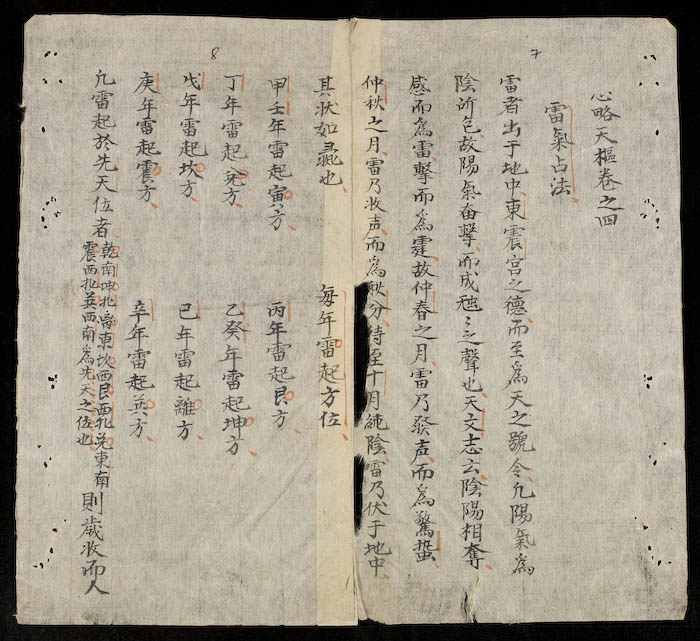 7
心略天樞卷之四
雷氣占法
雷者出于地中東震宮之德而至爲天之號令凢陽氣爲
陰所包故陽氣奋擊而成䖝〻之聲也天文志云陰陽相奪
感而爲雷擊而爲霆故仲春之月雷乃發声而爲驚蟄
仲秋之月雷乃收声而爲秋分待至十月純陰雷乃伏于地中
8
其状如彘也 每年雷起方位
甲壬年雷起寅方 丙年雷起艮方
丁年雷起兌方 乙癸年雷起坤方
戊年雷起坎方 己年雷起離方
庚年雷起震方 辛年雷起巽方
凢雷起於先天位者乾南坤北离東坎西艮西北兌東南
震西北巽西南爲先天之位也則歲收而人